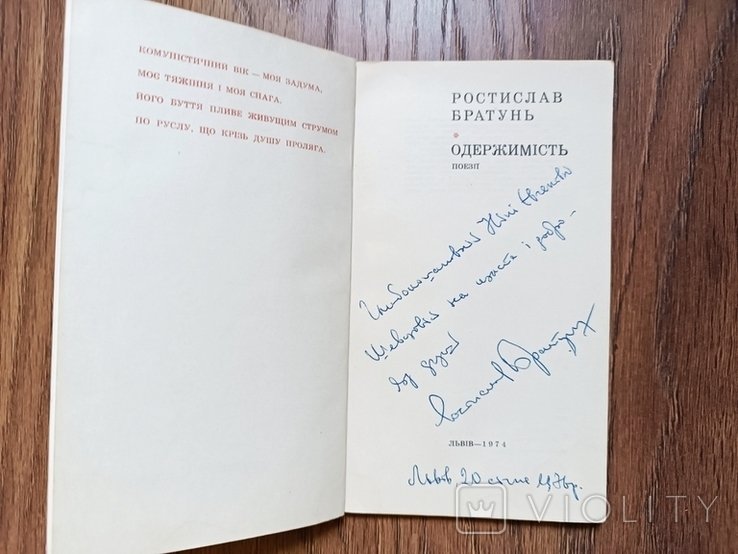 КОМУНІСТИЧНИЙ ВІК — МОЯ ЗАДУМА,
МОЄ ТЯЖІННЯ І МОЯ СНАГА.
ЙОГО БУТТЯ ПЛИВЕ ЖИВУЩИМ СТРУМОМ
ПО РУСЛУ, ЩО КРІЗЬ ДУШУ ПРОЛЯГА.
РОСТИСЛАВ
БРАТУНЬ
ОДЕРЖИМІСТЬ
ПОЕЗІЇ
Глибокошановній Ніні
на щастя і добро —
від душі
Ростислав Братунь
ЛЬВІВ—1974
Львів 20 січня 1976р.
VIOLITY